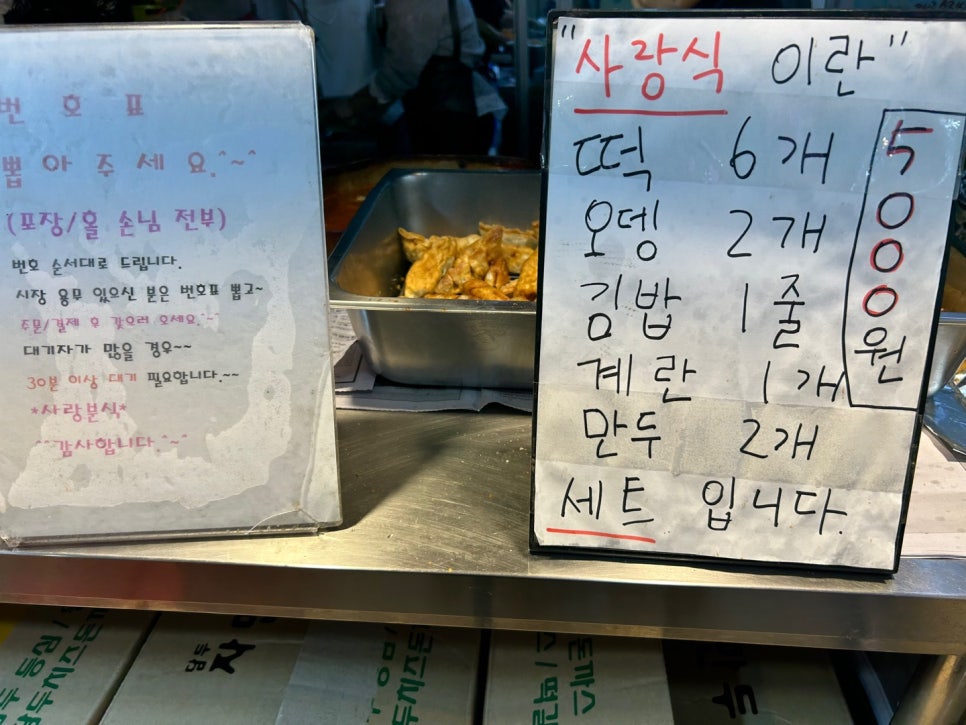 번 호 표
뽑 아 주 세 요.^~^
(포장/홀 손님 전부)
번호 순서대로 드립니다.
시장 용무 있으신 분은 번호표 뽑고~
주문/결제 후 갖으러 오세요.^~
대기자가 많을 경우~~
30분 이상 대기 필요합니다.~~
*사랑분식*
^^감사합니다.^~^
"사랑식 이란"
떡 6개
오뎅 2개
김밥 1줄
계란 1개
만두 2개
5000원
세트 입니다.